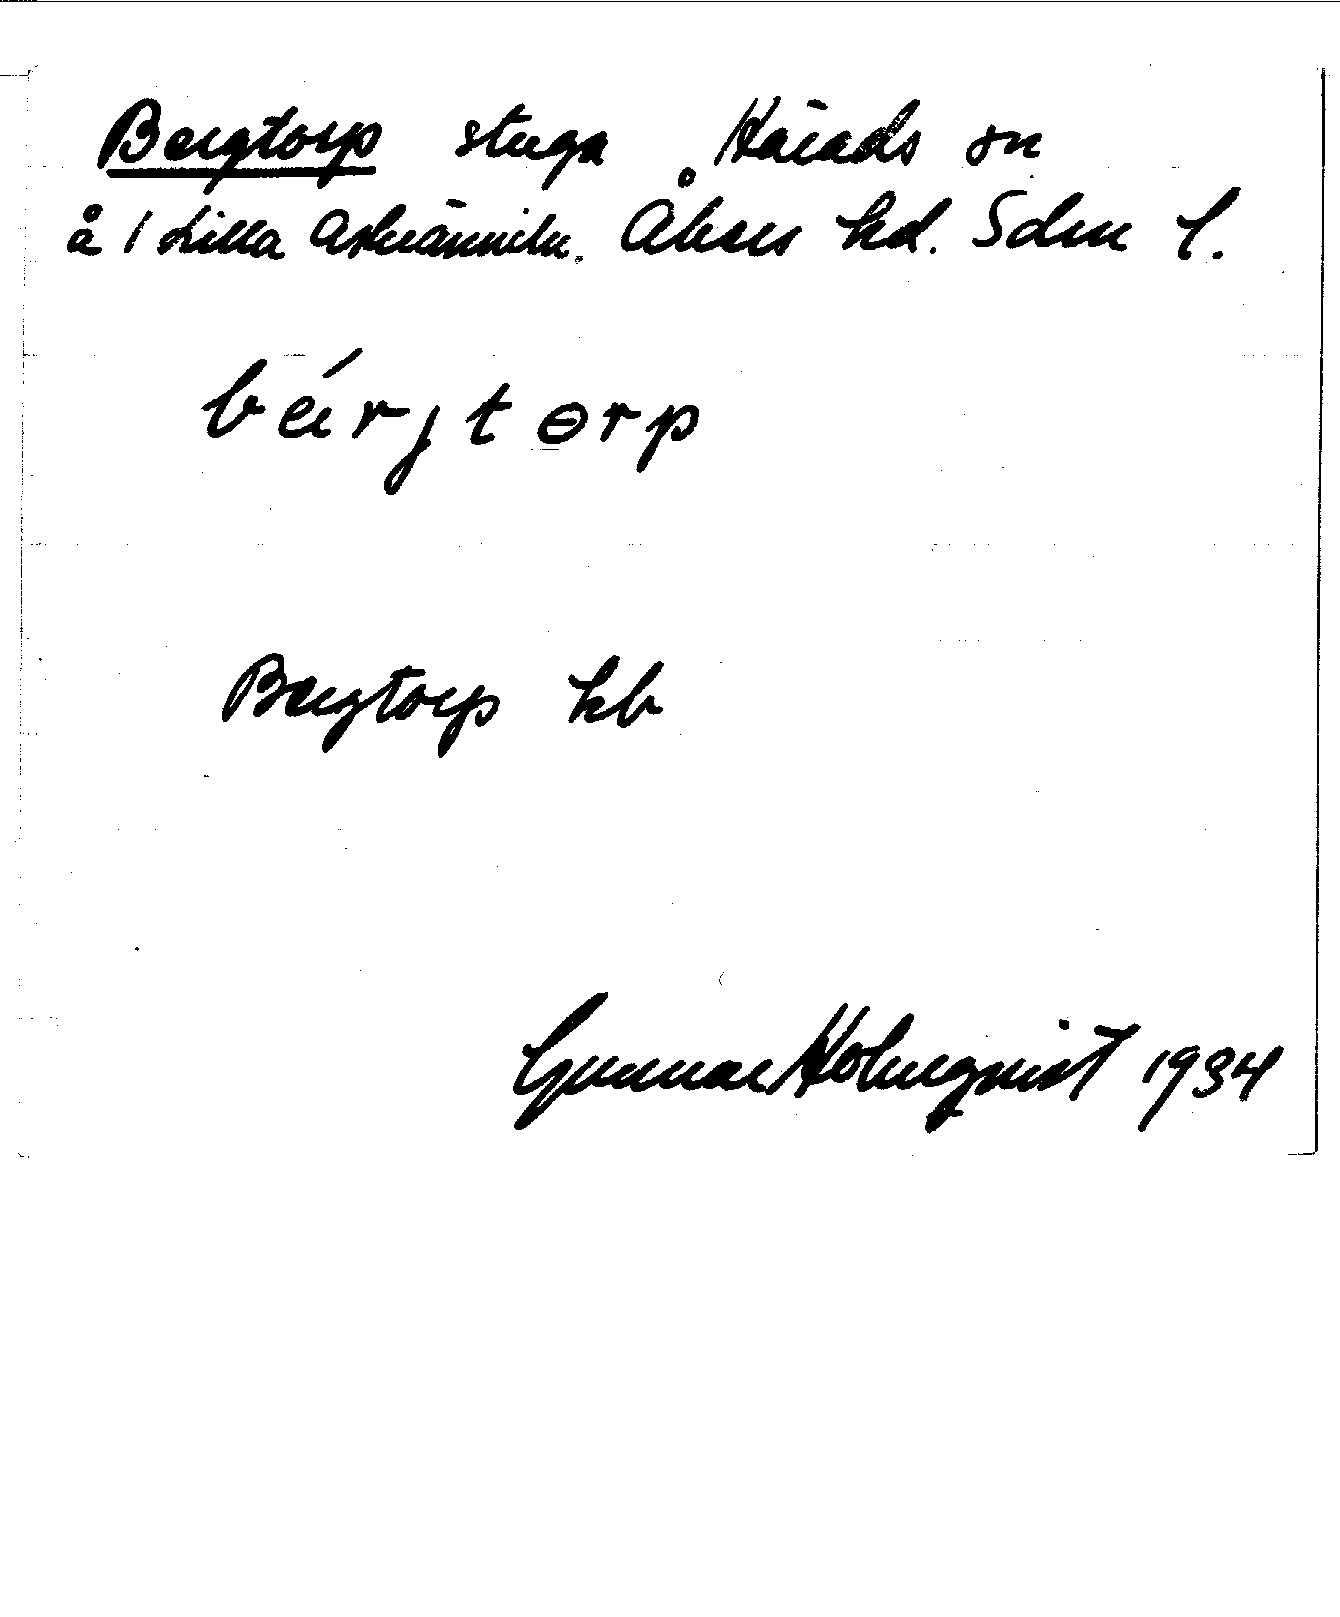 Bergtorp stuga Härads sn
å 1 Lilla Åkers hd. Sdm l.
bǽrjtɵrp
Bergtorp kb
Gunnar Holmqvist 1934